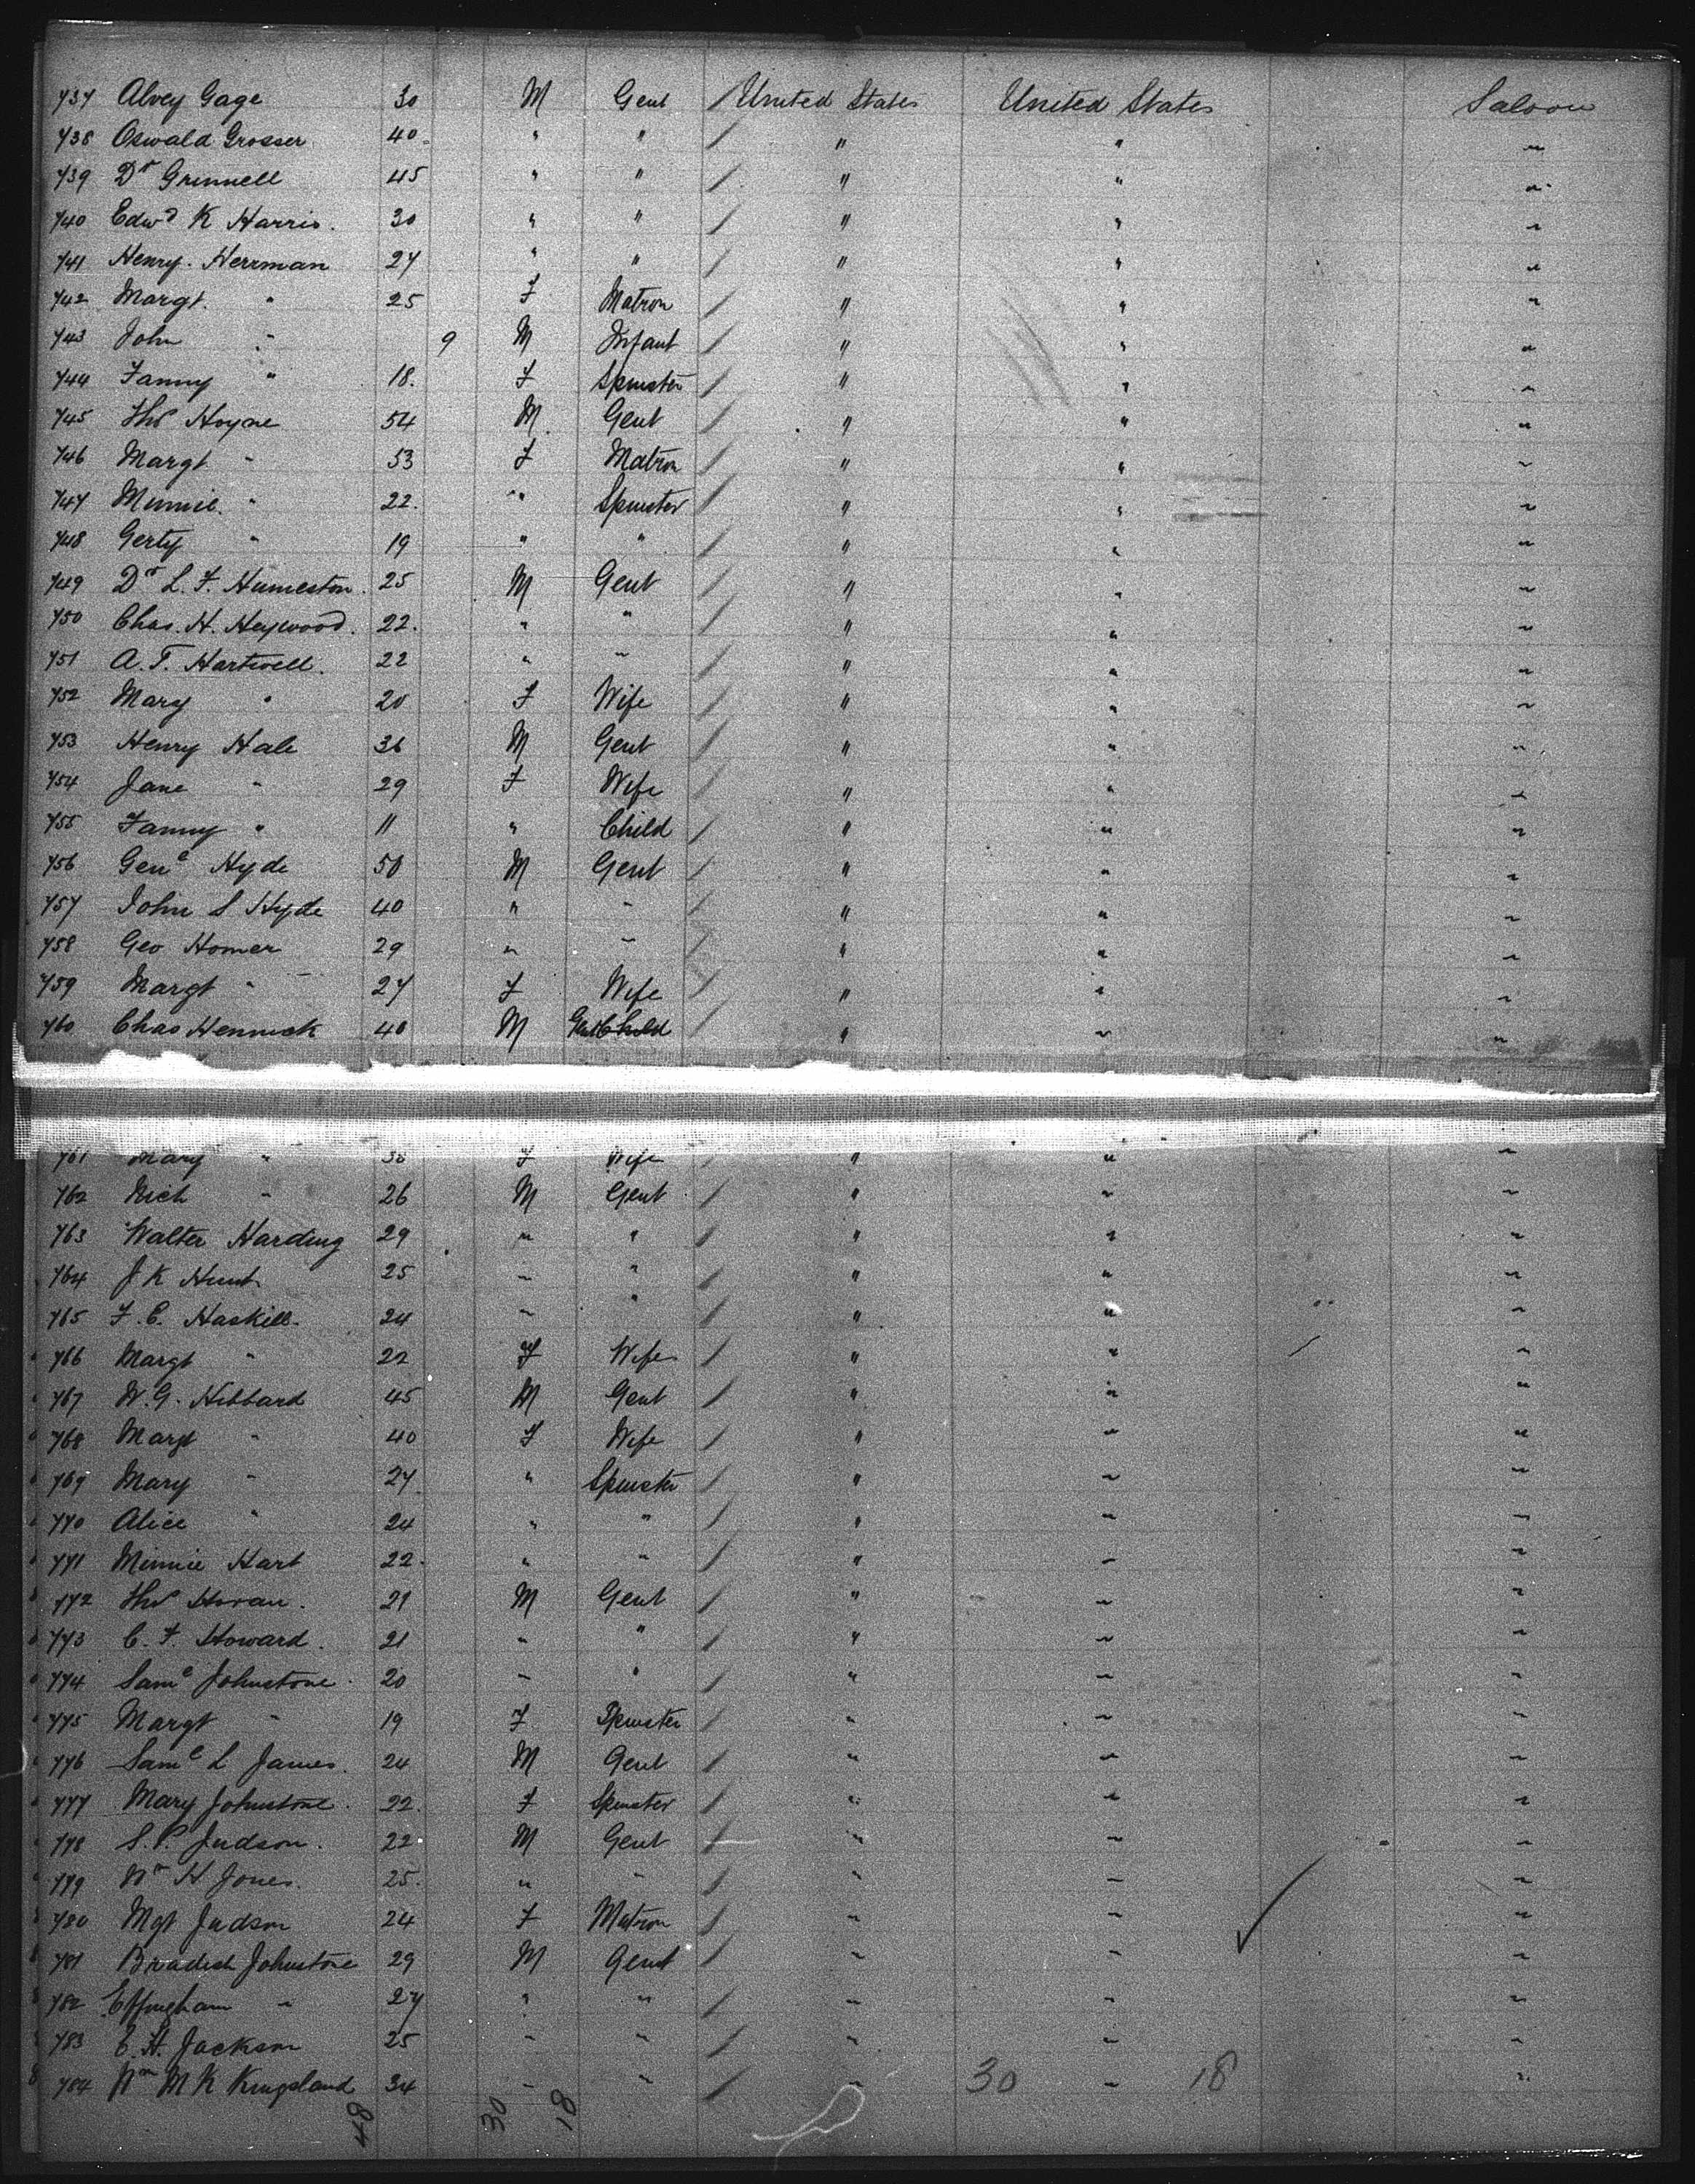 737 Alvey Gage 30 M Gent / United States United States Saloon
738 Oswald Grosser 40 " " / " " "
739 Dr Grinnell 45 " " / " " "
740 Edwd K Harris. 30 " " / " " "
741 Henry. Herrman 27 " " / " " "
742 Margt. " 25 F Matron / " " "
743 John " 9 M Infant / " " "
744 Fanny " 18. F Spinster / " " "
745 Ths Hoyne 54 M Gent / " " "
746 Margt " 53 F Matron / " " "
747 Minnie. " 22. " Spinster / " " "
748 Gerty " 19 " " / " " "
749 Dr L. F. Humeston. 25 M Gent / " " "
750 Chas. H. Heywood. 22. " " / " " "
751 A. T. Hartwell. 22 " " / " " "
752 Mary " 20 F Wife / " " "
753 Henry Hale 36 M Gent / " " "
754 Jane " 29 F Wife / " " "
755 Fanny " 11 " Child / " " "
756 Genl Hyde 50 M Gent / " " "
757 John S Hyde 40 " " / " " "
758 Geo Homer 29 " " / " " "
759 Margt " 27 F Wife / " " "
760 Chas Hennick 40 M Gent Child / " " "
761 Mary " 30 F Wife / " " "
762 Rich " 26 M Gent / " " "
763 Walter Harding 29 " " / " " "
764 J K Hunt 25 " " / " " "
765 F. C. Haskill. 24 " " / " " "
766 Margt " 22 F Wife / " " "
767 W. G. Hibbard 45 M Gent / " " "
768 Margt " 40 F Wife / " " "
769 Mary " 27 " Spinster / " " "
770 Alice " 24 " " / " " "
771 Minnie Hart 22. " " / " " "
772 Ths Horan. 21 M Gent / " " "
773 C. F. Howard. 21 " " / " " "
774 Saml Johnstone. 20 " " / " " "
775 Margt " 19 F Spinster / " " "
776 Saml L James. 24 M Gent / " " "
777 Mary Johnstone. 22. F Spinster / " " "
778 S. P. Judson. 22 M Gent / " " "
779 Wm H Jones. 25. " " / " " "
780 Mgt Judson 24 F Matron / " " "
781 Bradish Johnstone 29 M Gent / " " "
782 Effingham " 27 " " / " " "
783 E. H. Jackson 25 " " / " " "
784 Wm M K Kingsland 34 " " / " 30 " 18 "
48 30 18